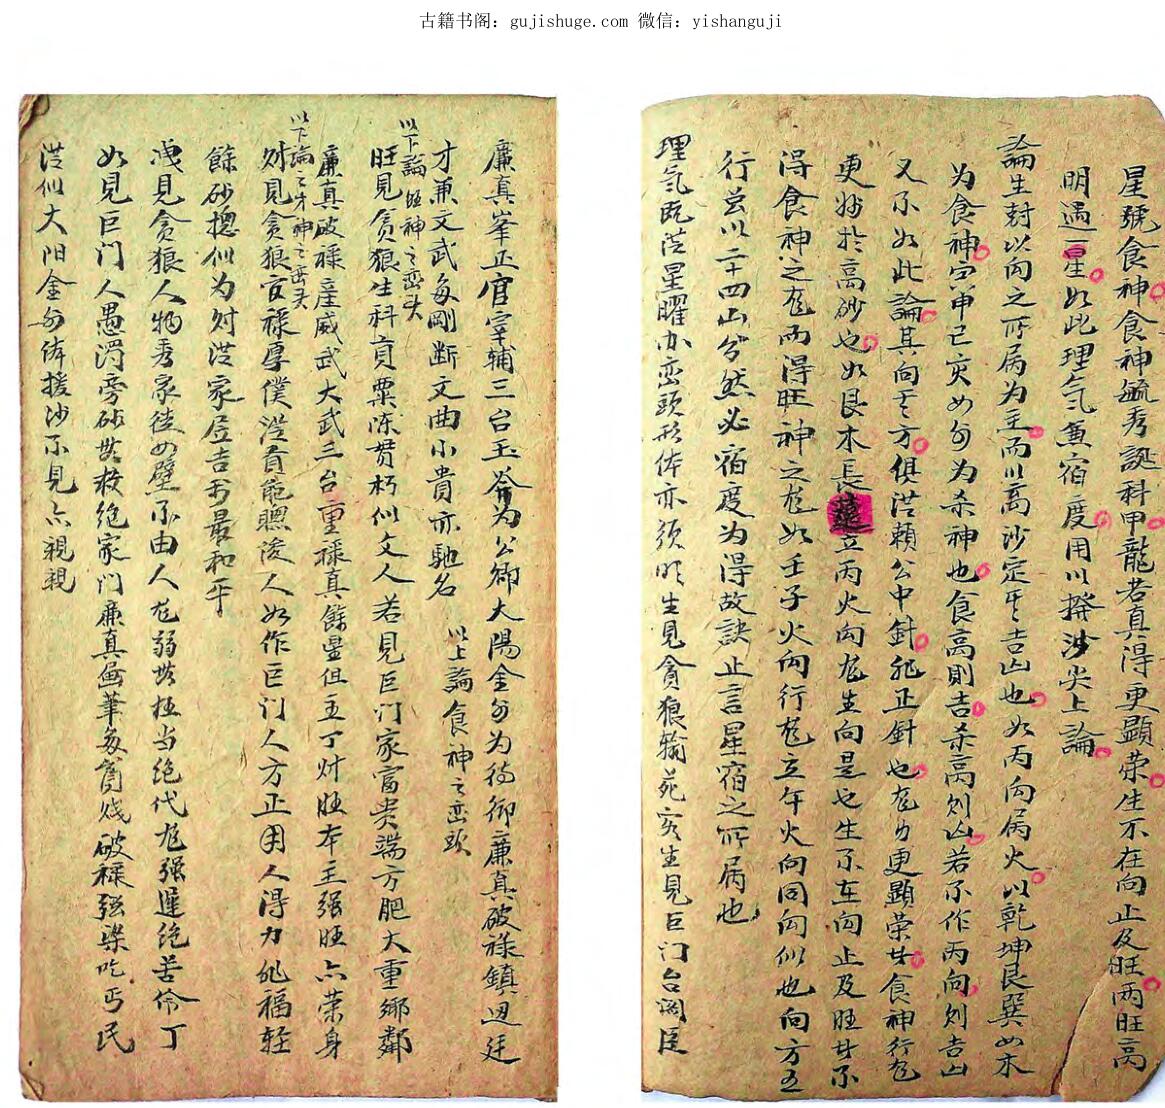 古籍书阁：gujishuge.com 微信：yishanguji
星號食神食神毓秀誕科甲龍若真得更顯荣生不在向止及旺两旺高
明過一星如此理气兼宿度用以撥沙尖上論
論生尅以向之所属为主而以高沙定其吉凶也如丙向属火以乾坤艮巽四木
为食神甲巳亥为杀神也食高則吉杀高则凶若不作丙向则吉凶
又不如此論其向之方俱從賴公中針非正針也龙力更顯荣其食神行龙
更妙於高砂也如艮木長立丙火向龙生向是也生不在向止及旺其不
得食神之龙而得旺神之龙如壬子火向行龙立午火向同向似也向方五
行总以二十四山分然必宿度为得故訣止言星宿之所属也
理气既從星曜办峦頭形体亦须明生見貪狼翰苑客生見巨门台阁臣
廉真峯正官宰輔三台玉为公卿大陽金为侍御廉真破禄鎮边廷
才兼文武每剛断文曲小貴亦馳名 以上論食神之峦頭
以下論旺神之峦头
旺見貪狼生科貢粟陈贯朽似文人若見巨门家富贵端方肥大重鄉鄰
廉真破禄産威武大武三台重禄真餘星但主丁财旺本主强旺亦荣身
以下論之才神之峦头
财見貪狼官禄厚僕從有能聰俊人如作巨门人方正用人得力非福轻
餘砂揔似为财從家居吉利最和平
洩見貪狼人物秀家徒四壁不由人龙弱其枉当绝代龙强進绝苦伶丁
如見巨门人愚濁旁砂其救绝家门廉真画華多貧贱破禄强梁吃丐民
從似大阳金体援沙不見亦親親